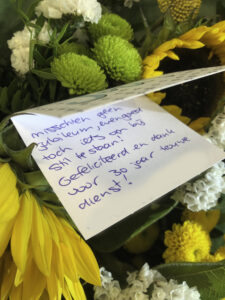 misschien geen
jubileum, evengoed
toch iets om bij
stil te staan!
Gefeliciteerd en dank
voor 30 jaar trouwe
dienst!